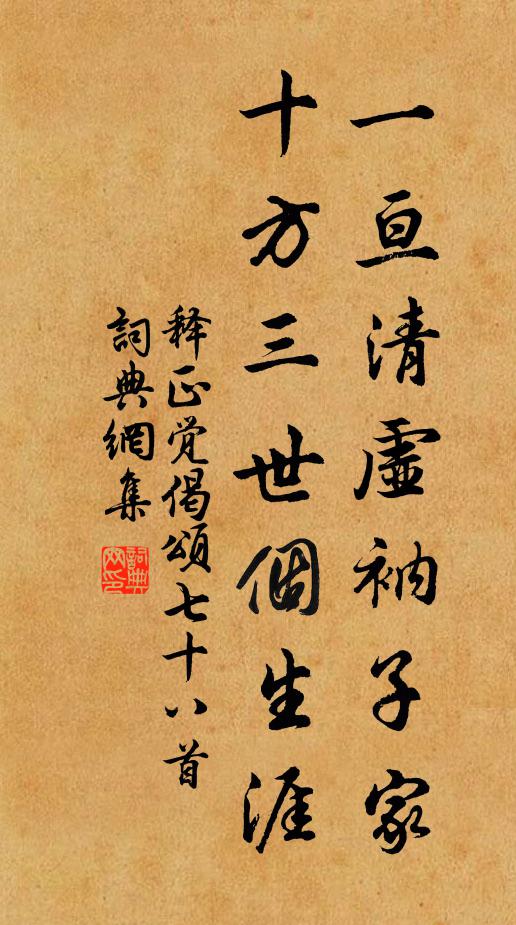 一亘清虛衲子家
十方三世個生涯
释正覚偈頌七十八首
詞典網集
詞典網印